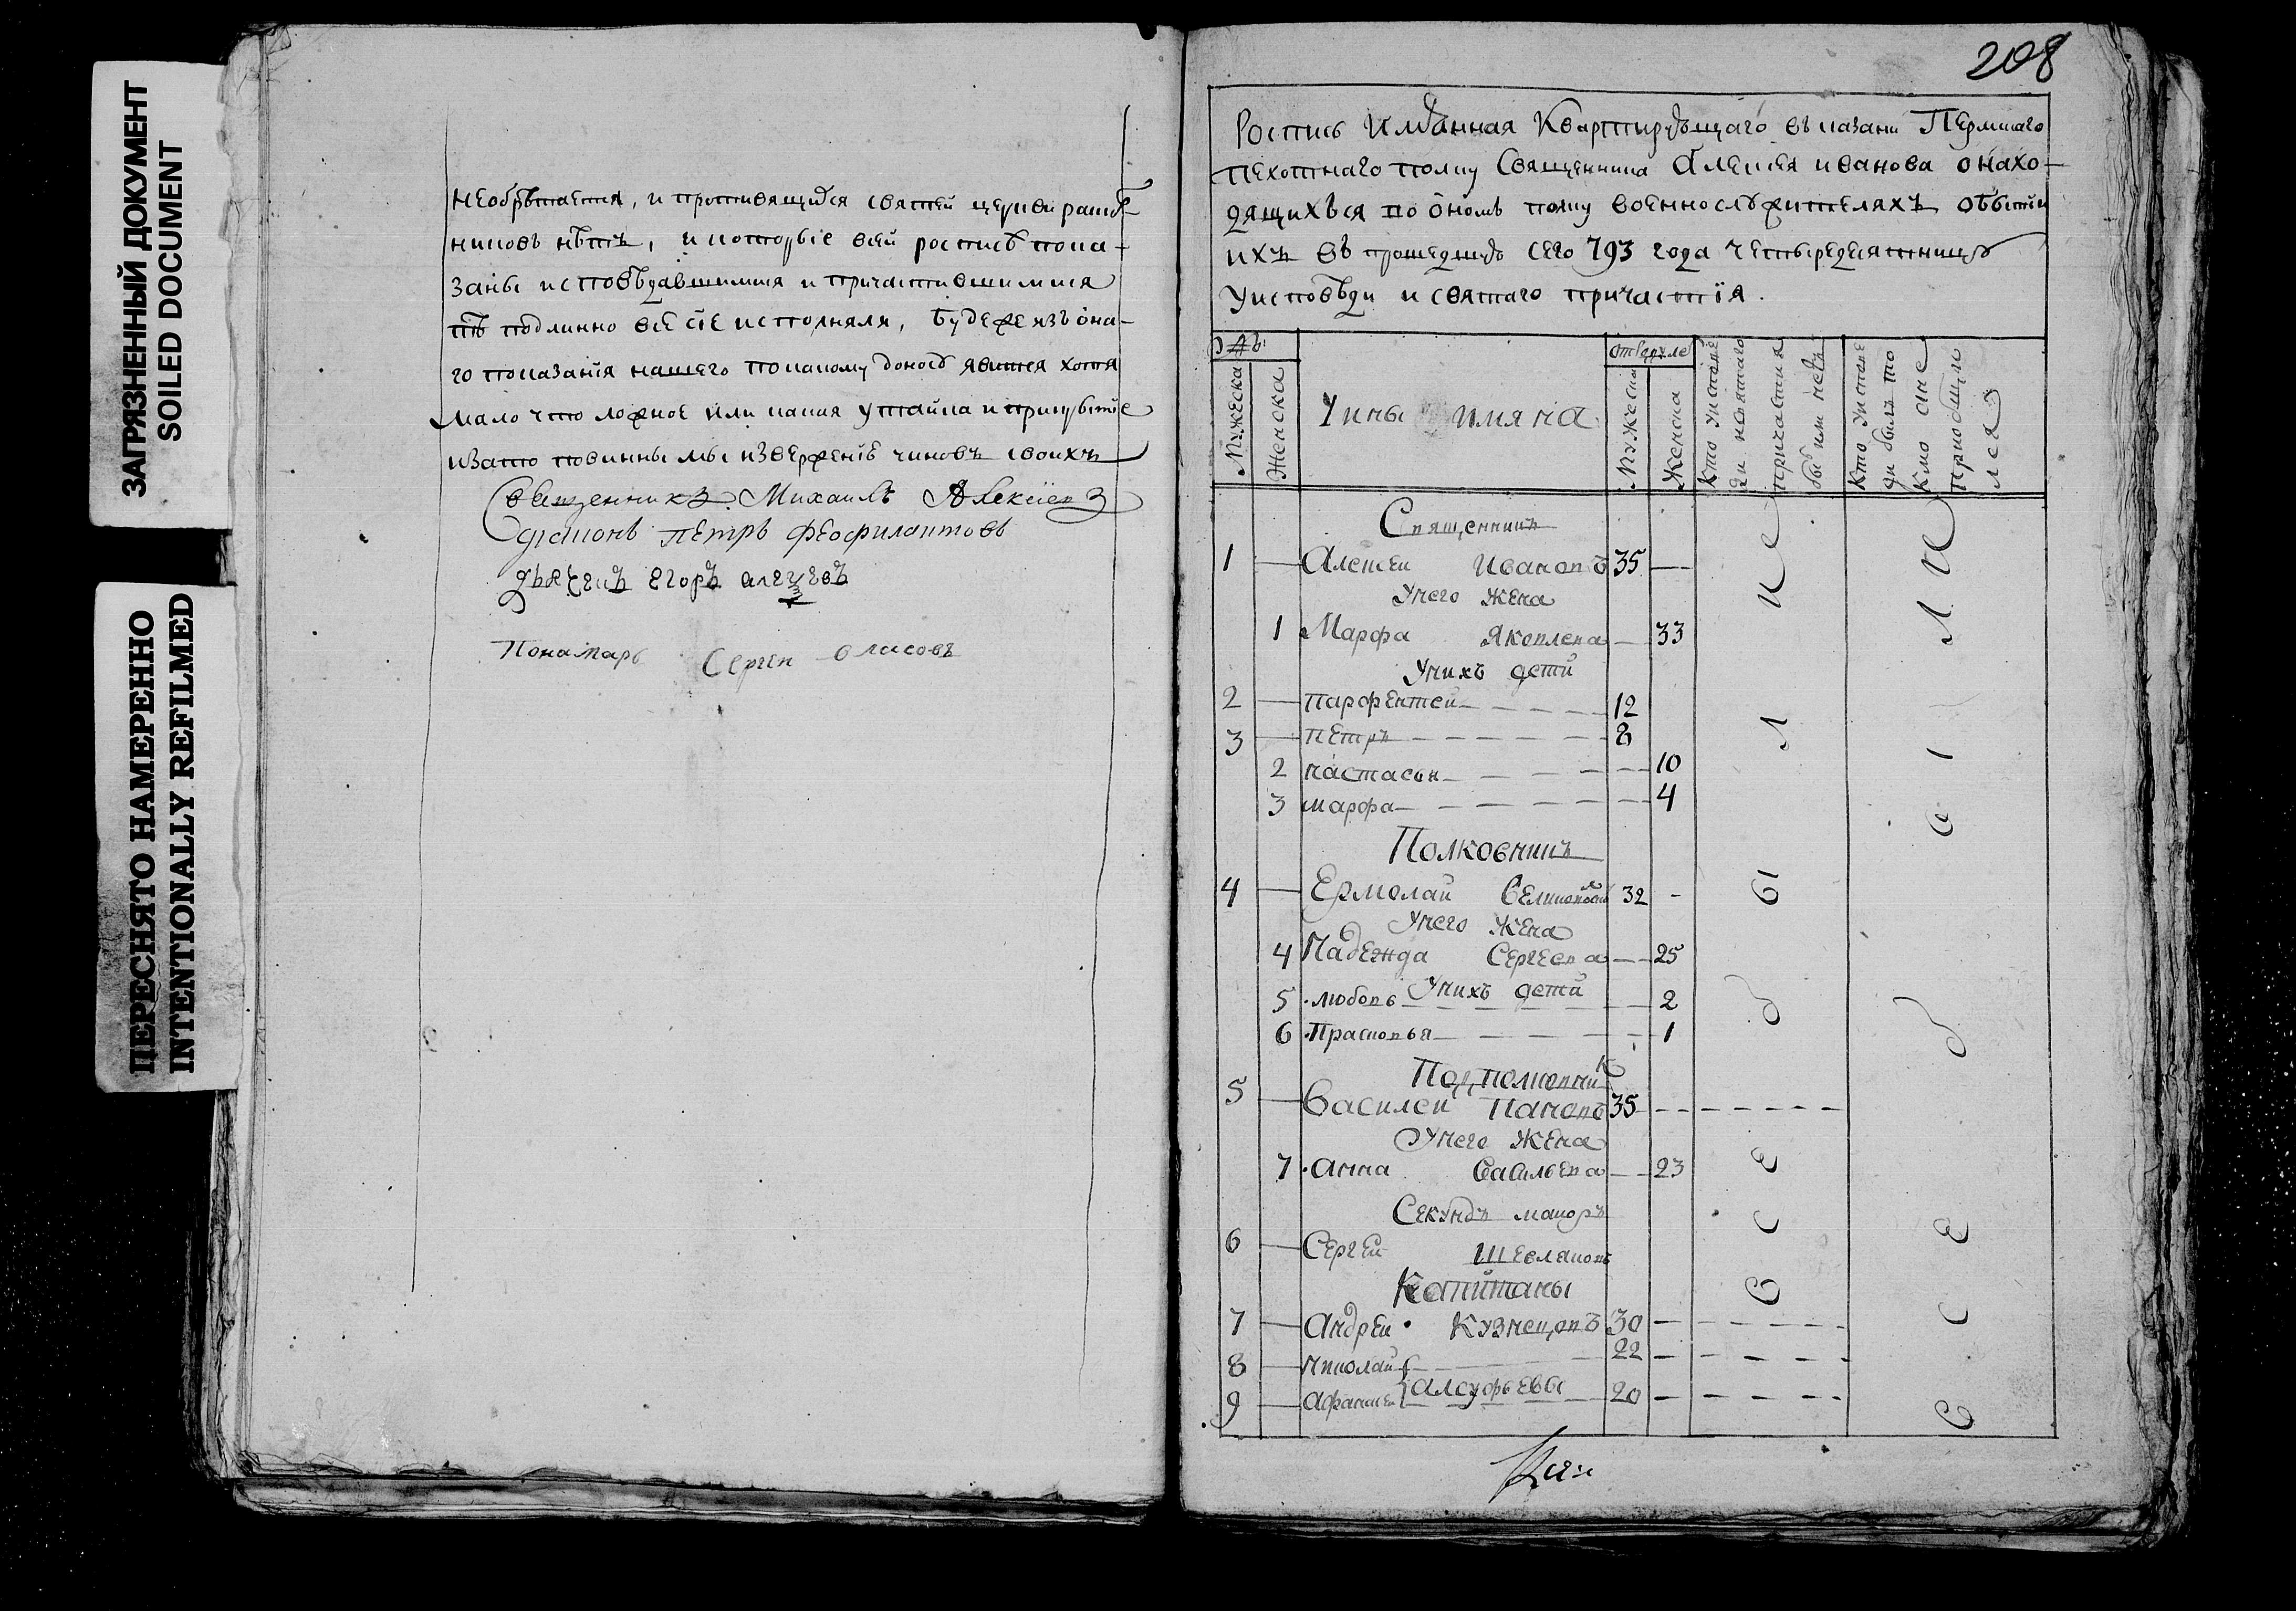 ЗАГРЯЗНЕННЫЙ ДОКУМЕНТ
SOILED DOCUMENT
ПЕРЕСНЯТО НАМЕРЕННО
INTENTIONALLY REFILMED
необрѣтается, и противящихся святей церкви раскол-
никовъ нѣтъ, и которые всей росписѣ пока-
заны исповѣдавшимися и причастившимися
тѣ подлинно всё сїе исполняли, буде же изъ она-
го показанїя нашего по какому доносу явится хотя
мало что ложное или какая утайка и прикрытїе
изато повинны мы извержению чиновъ своихъ
Священникъ Михаилъ Алексиевъ
диаконъ Петръ Феофилактовъ
дьячекъ Егоръ
Понамарь Сергеи Власовъ
208
Роспись имянная Квартирующаго въ казани Пермскаго
пехотнаго полку Священника Алексея иванова онахо-
дящихъся по ономъ полку военнослужителяхъ обытии
ихъ въ прошедшую сего 793 года четыредесятницу
уисповѣди и святаго причастїя.
Мужеска
Женска
Чины имяна
Мужеска
Женска
Кто уисповѣ
ди исвятаго
причастия
был или нетъ
Кто уисповѣ
ди былъ то
кмо а не
приобщил
лся
Священникъ
1 — Алексеи Ивановъ 35 —
Унего Жена
1 Марфа Яковлева — 33
Унихъ дети
2 — Парфентеи 12
3 — Петръ 8
2 настасья — 10
3 марфа — 4
Полковникъ
4 — Ермолаи 32 -
Унего Жена
4 Надежда Сергеева — 25
Унихъ дети
5 любовь — 2
6 Прасковья — 1
Подполковникъ
5 — Василеи Пановъ 35 - -
Унего Жена
7 Анна Васильева — 23
Секундъ маиоръ
6 — Сергеи Шевляковъ
Капитаны
7 — Андреи Кузнецовъ 30 —
8 — николаи 22 —
9 — Афанасеи Алсуфьевы 20 —
В С Е б ы л и
В С Е б